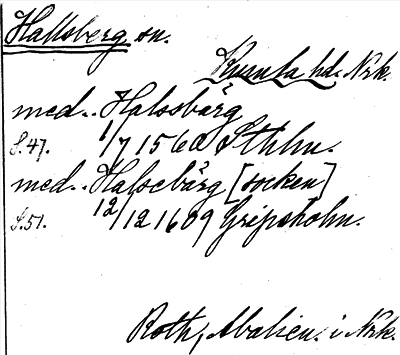 Hallsberg sn.
Kumla hd. Nrk.
med.. Halssbärg
S.47. 1/7 1560 Sthlm.
med.. Halsebärg [socken]
S.51. 12/12 1609 Gripsholm.
Roth, Abalien. i Nrk.